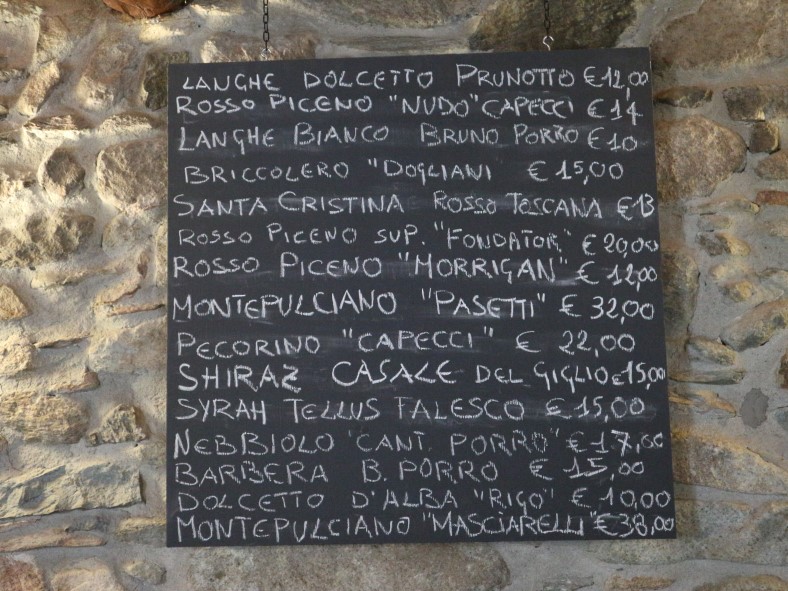 LANGHE DOLCETTO PRUNOTTO €12,00
ROSSO PICENO "NUDO" CAPECCI €14
LANGHE BIANCO BRUNO PORRO €10
BRICCOLERO "DOGLIANI €15,00
SANTA CRISTINA ROSSO TOSCANA €13
ROSSO PICENO SUP. "FONDATOR" €20,00
ROSSO PICENO "MORRIGAN" €12,00
MONTEPULCIANO "PASETTI" €32,00
PECORINO "CAPECCI" €22,00
SHIRAZ CASALE DEL GIGLIO €15,00
SYRAH TELLUS FALESCO €15,00
NEBBIOLO 'CANT. PORRO" €17,00
BARBERA B. PORRO €15,00
DOLCETTO D'ALBA "RIGO" €10,00
MONTEPULCIANO "MASCIARELLI" €38,00